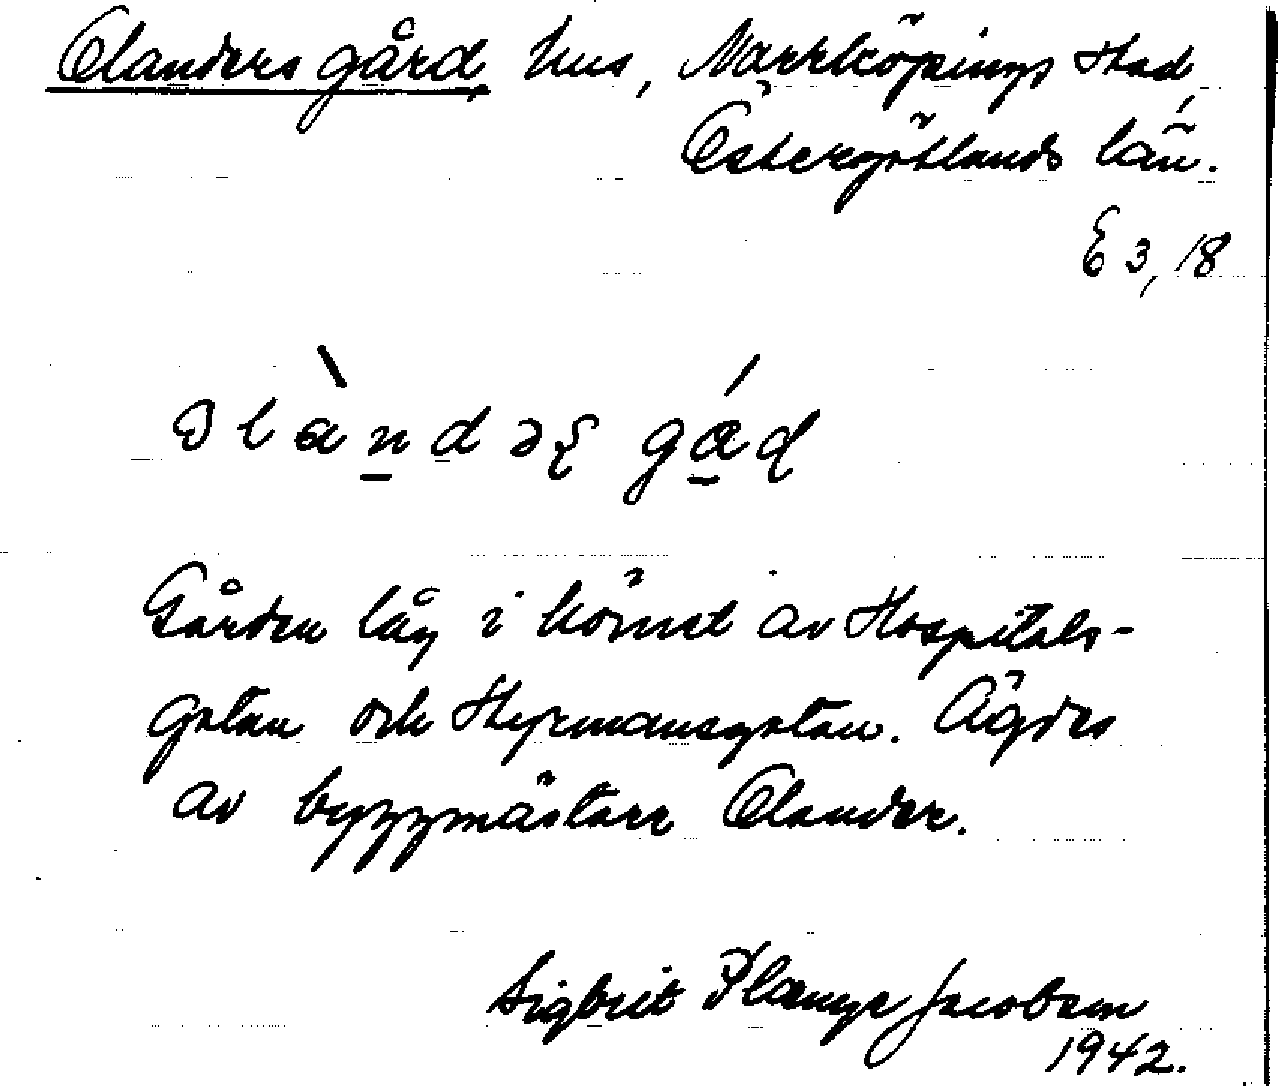 Olanders gård, hus, Norrköpings stad,
Östergötlands län.
E 3, 18
Gården låg i hörnet av Hospitals-
gatan och Styrmansgatan. Ägdes
av byggmästare Olander.
Sigbrit Plænge Jacobson
1942.